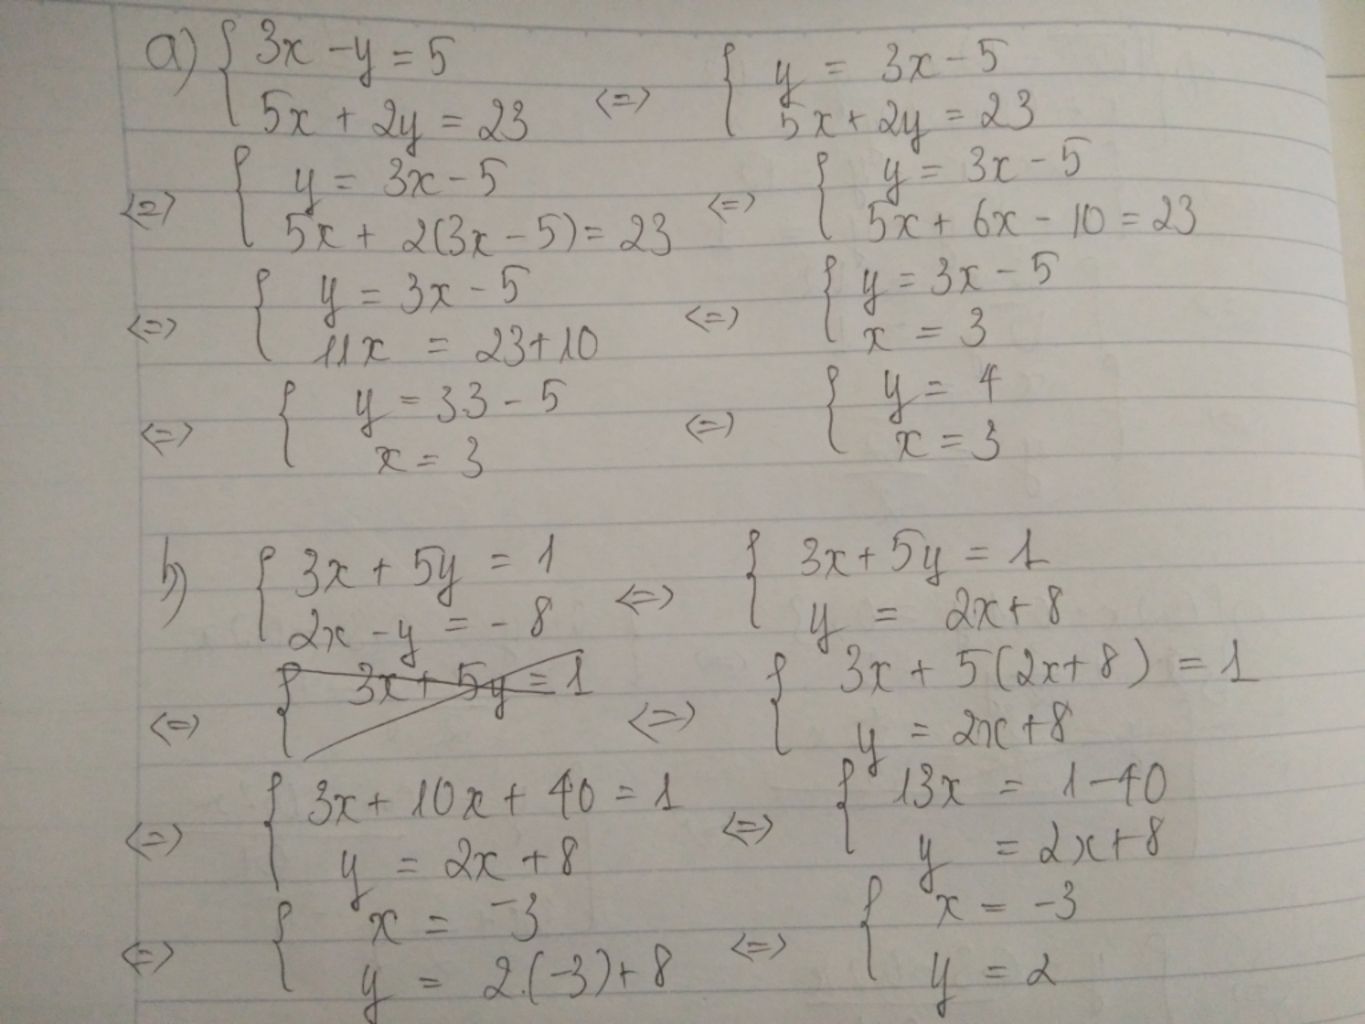 a) { 3x - y = 5
5x + 2y = 23 <=> { y = 3x - 5
5x + 2y = 23
<=> { y = 3x - 5
5x + 2(3x - 5) = 23 <=> { y = 3x - 5
5x + 6x - 10 = 23
<=> { y = 3x - 5
11x = 23+10 <=> { y = 3x - 5
x = 3
<=> { y = 3.3 - 5
x = 3 <=> { y = 4
x = 3
b) { 3x + 5y = 1
2x - y = - 8 <=> { 3x + 5y = 1
y = 2x + 8
<=> { 3x + 5y = 1 <=> { 3x + 5(2x+8) = 1
y = 2x + 8
<=> { 3x + 10x + 40 = 1
y = 2x + 8 <=> { 13x = 1 - 40
y = 2x + 8
<=> { x = -3
y = 2.(-3) + 8 <=> { x = -3
y = 2